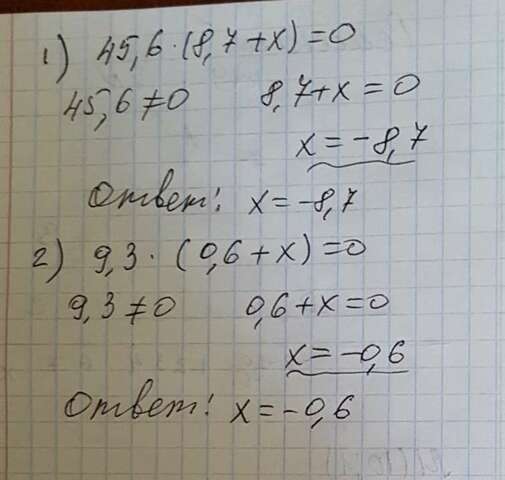 1) 45,6·(8,7+x)=0
45,6≠0 8,7+x=0
x=-8,7
Ответ: x=-8,7
2) 9,3·(0,6+x)=0
9,3≠0 0,6+x=0
x=-0,6
Ответ: x=-0,6